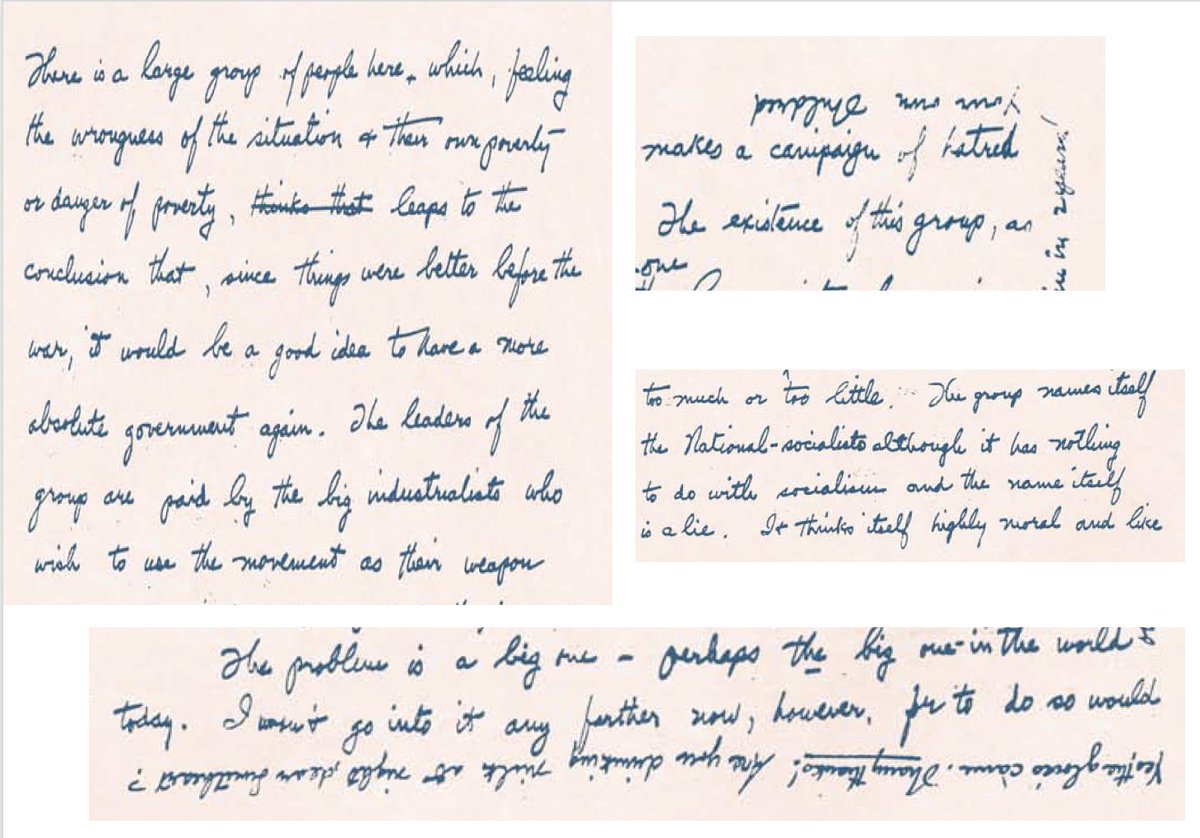 There is a large group of people here, which, feeling
the wrongness of the situation & their own poverty
or danger of poverty, thinks that leaps to the
conclusion that, since things were better before the
war, it would be a good idea to have a more
absolute government again. The leaders of the
group are paid by the big industrialists who
wish to use the movement as their weapon
Your own Mildred
makes a campaign of hatred
The existence of this group, as
one
in 2 years!
too much or too little. The group names itself
the National-socialists although it has nothing
to do with socialism and the name itself
is a lie. It thinks itself highly moral and like
The problem is a big one – perhaps the big one in the world
today. I won't go into it any farther now, however, for to do so would
Yes the gloves came. Many thanks! Are you drinking milk at night, dear Sweetheart?